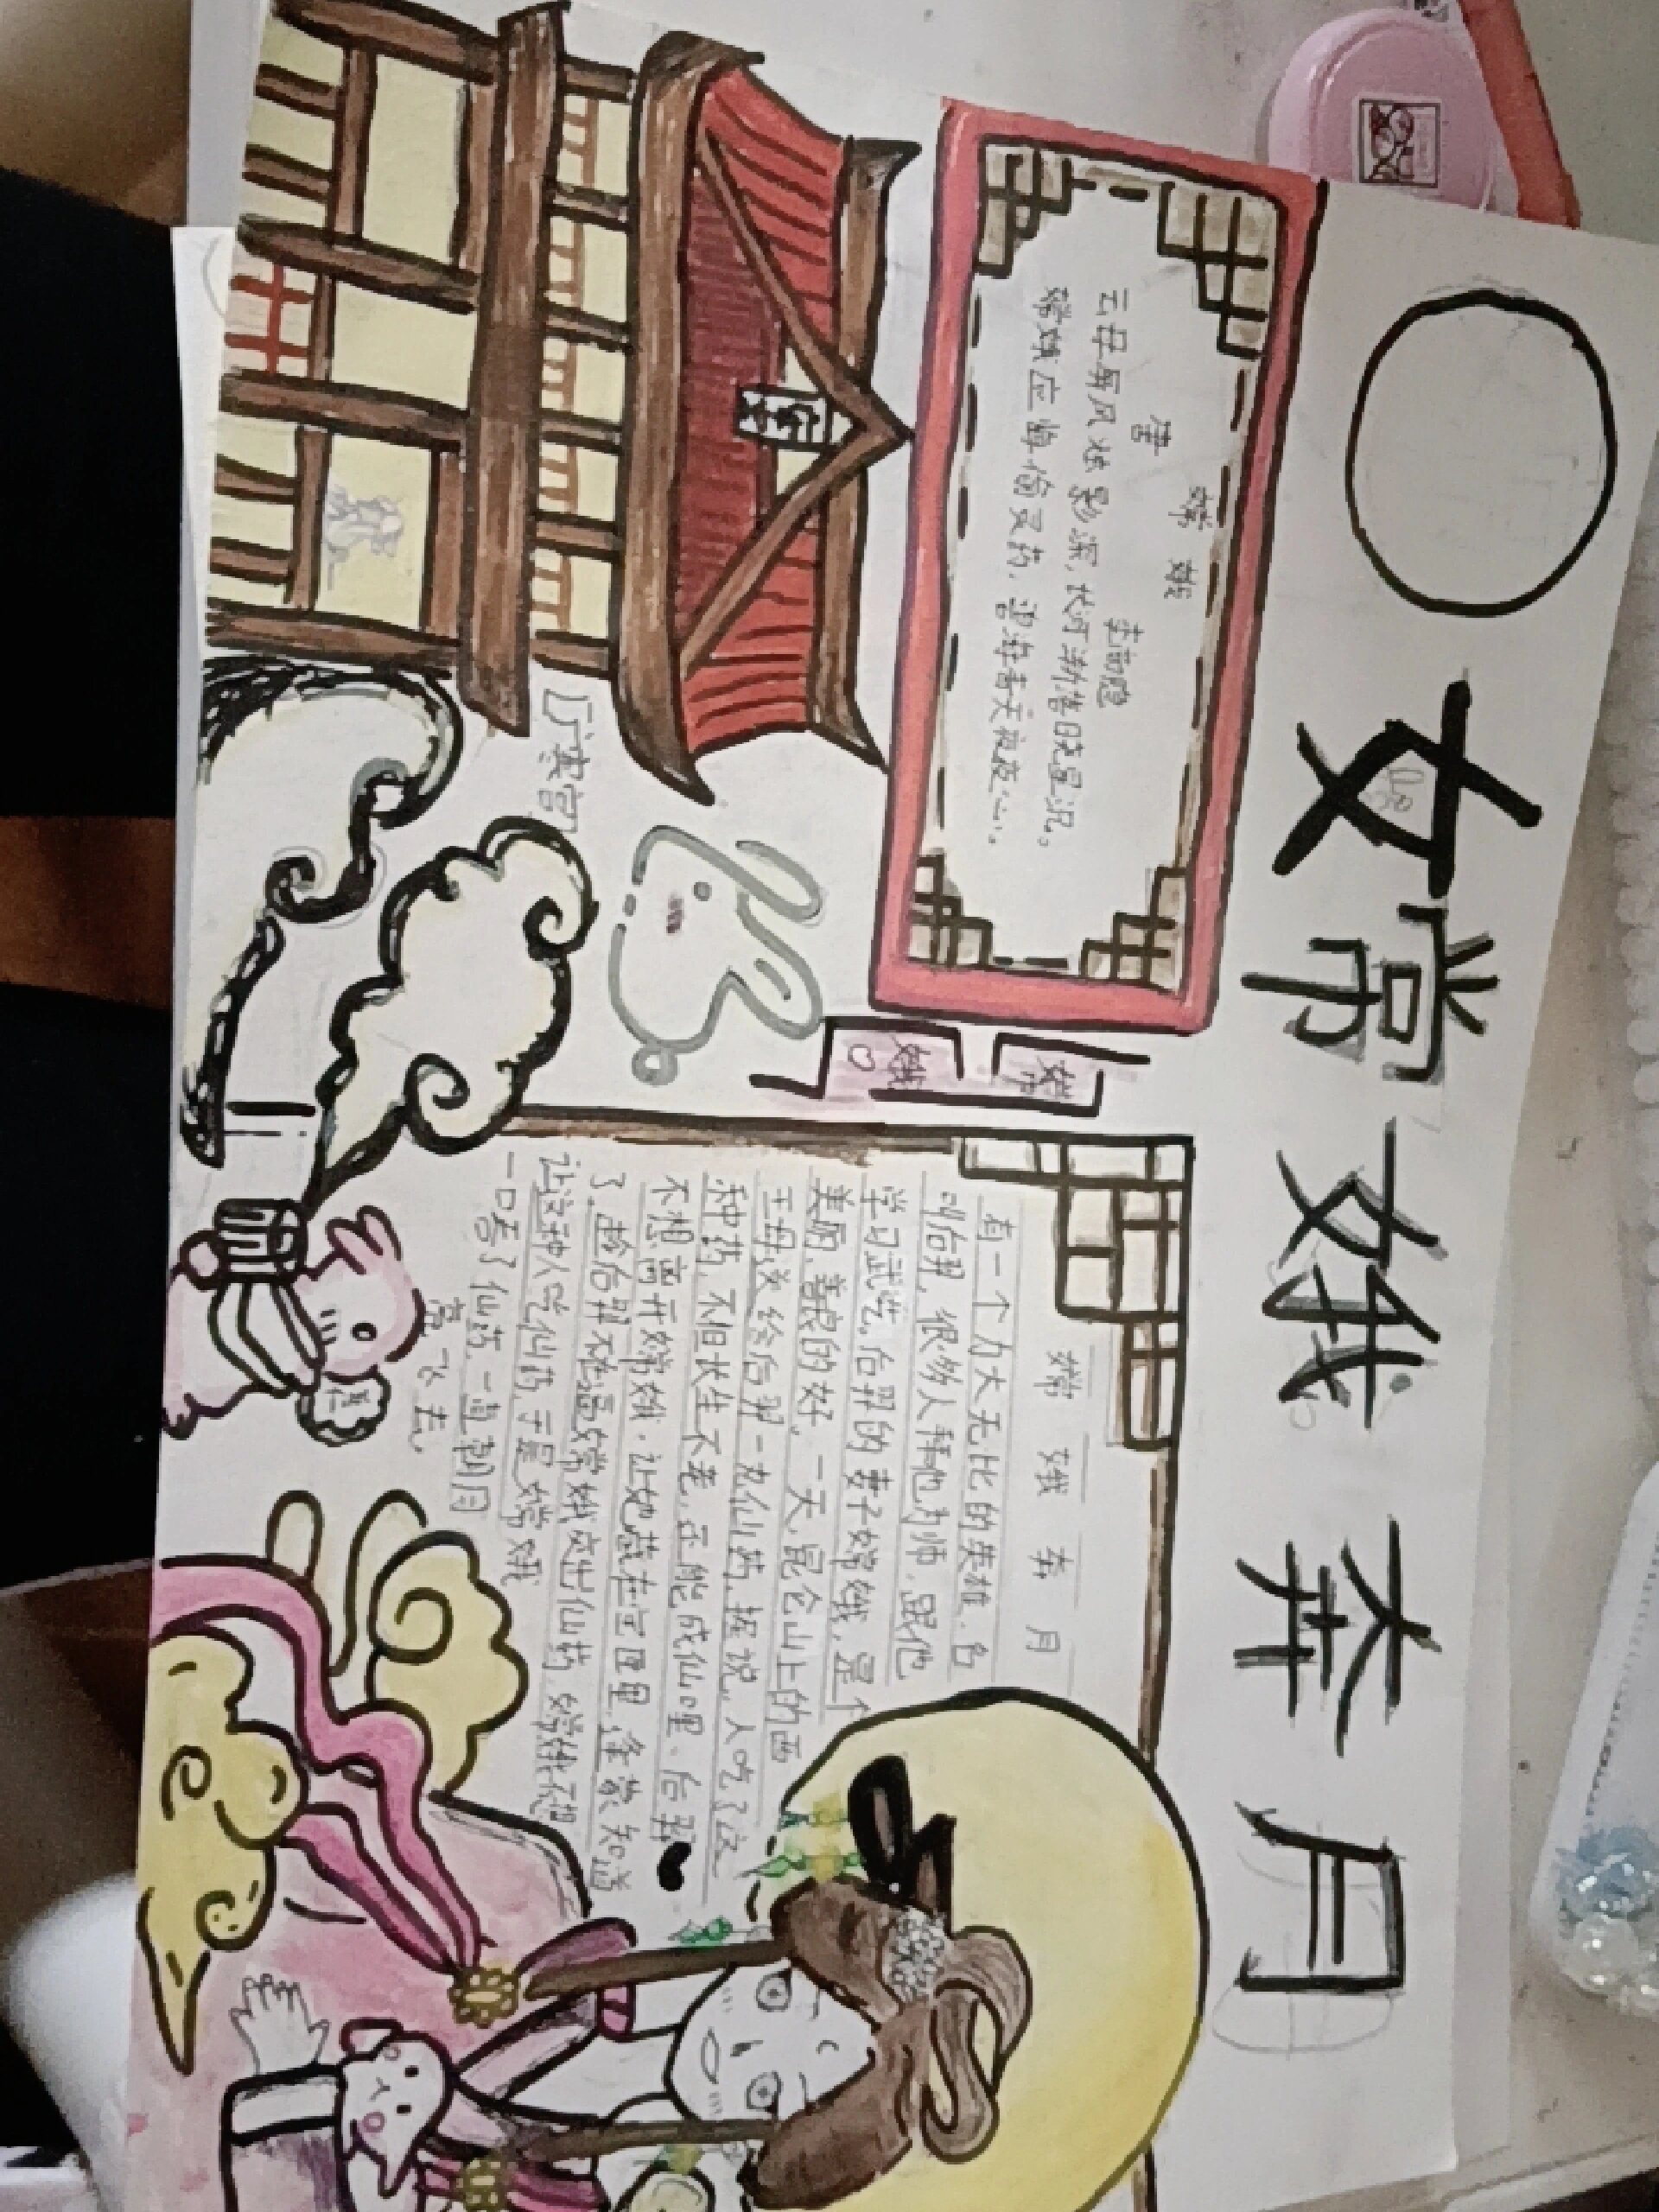 嫦娥奔月
嫦娥
唐 李商隐
云母屏风烛影深，长河渐落晓星沉。
嫦娥应悔偷灵药，碧海青天夜夜心。
广寒宫
嫦
娥
嫦娥奔月
有一个力大无比的英雄，名
叫后羿，很多人拜他为师，跟他
学习武艺。后羿的妻子嫦娥，是个
美丽、善良的好。一天，昆仑山上的西
王母送给后羿一丸仙药，据说，人吃了这
种药，不但长生不老，还能成仙哩。后羿
不想离开嫦娥，让她藏在宝匣里，逢蒙知道
了，趁后羿不在逼嫦娥交出仙药，嫦娥不想
让这种人吃仙药，于是嫦娥
一口吞了仙药，一直朝月
亮飞去。